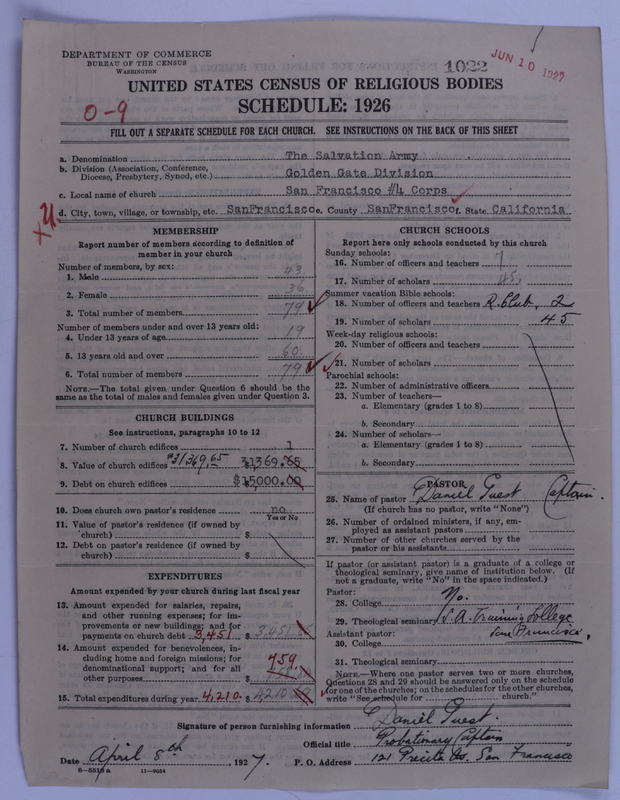 DEPARTMENT OF COMMERCE
BUREAU OF THE CENSUS
WASHINGTON
1022
JUN 10 1927
UNITED STATES CENSUS OF RELIGIOUS BODIES
SCHEDULE: 1926
0-9
FILL OUT A SEPARATE SCHEDULE FOR EACH CHURCH. SEE INSTRUCTIONS ON THE BACK OF THIS SHEET
a. Denomination The Salvation Army
b. Division (Association, Conference, Diocese, Presbytery, Synod, etc.) Golden Gate Division
c. Local name of church San Francisco #4 Corps
d. City, town, village, or township, etc. SanFrancisco e. County SanFrancisco f. State California
MEMBERSHIP
Report number of members according to definition of
member in your church
Number of members, by sex:
1. Male 43
2. Female 36
3. Total number of members 79
Number of members under and over 13 years old:
4. Under 13 years of age 19
5. 13 years old and over 60
6. Total number of members 79
NOTE.—The total given under Question 6 should be
same as the total of males and females given under Question 3.
CHURCH BUILDINGS
See instructions, paragraphs 10 to 12
7. Number of church edifices 1
8. Value of church edifices $31369.65 31369.65
9. Debt on church edifices $15000.00
10. Does church own pastor's residence no
Yes or No
11. Value of pastor's residence (if owned by
church) $
12. Debt on pastor's residence (if owned by
church) $
EXPENDITURES
Amount expended by your church during last fiscal year
13. Amount expended for salaries, repairs,
and other running expenses; for im-
provements or new buildings; and for
payments on church debt 3,451 $ 3451
14. Amount expended for benevolences, in-
cluding home and foreign missions; for
denominational support; and for all
other purposes $ 759
15. Total expenditures during year 4,210 $ 4210
CHURCH SCHOOLS
Report here only schools conducted by this church
Sunday schools:
16. Number of officers and teachers 7
17. Number of scholars 45
Summer vacation Bible schools:
18. Number of officers and teachers R. Club. 2
19. Number of scholars 45
Week-day religious schools:
20. Number of officers and teachers
21. Number of scholars
Parochial schools:
22. Number of administrative officers
23. Number of teachers—
a. Elementary (grades 1 to 8)
b. Secondary
24. Number of scholars—
a. Elementary (grades 1 to 8)
b. Secondary
PASTOR
25. Name of pastor Daniel Guest Captain.
(If church has no pastor, write "None")
26. Number of ordained ministers, if any, em-
ployed as assistant pastors
27. Number of other churches served by the
pastor or his assistants
If pastor (or assistant pastor) is a graduate of a college or
theological seminary, give name of institution below. (If
not a graduate, write "No" in the space indicated.)
Pastor:
28. College No.
29. Theological seminary S.A. Training College
Assistant pastor: San Francisco.
30. College
31. Theological seminary
NOTE.—Where one pastor serves two or more churches,
Questions 28 and 29 should be answered only on the schedule
for one of the churches; on the schedules for the other churches,
write "See schedule for church."
Signature of person furnishing information Daniel Guest.
Official title Probationary Captain
Date April 8th, 1927. P. O. Address 121 Precita Av. San Francisco
8—5515a 11—9054